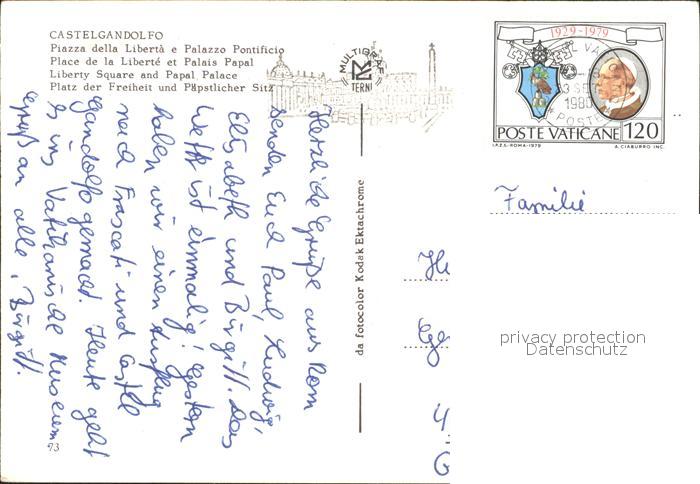 CASTELGANDOLFO
Piazza della Libertà e Palazzo Pontificio
Place de la Liberté et Palais Papal
Liberty Square and Papal Palace
Platz der Freiheit und Päpstlicher Sitz
MULTIGRAF
TERNI
1929-1979
1980
POSTE
POSTE VATICANE 120
I.P.Z.S.-ROMA-1979 A. CIABURRO INC.
Herzliche Grüße aus Rom
senden Euch Paul, Ludwig,
Elisabeth und Birgitt. Das
Wetter ist einmalig! Gestern
haben wir einen Ausflug
nach Frascati und Castel
Gandolfo gemacht. Heute geht
es ins Vatikanische Museum
Gruß an alle, Birgitt.
73
da fotocolor Kodak Ektachrome
Familie
privacy protection
Datenschutz